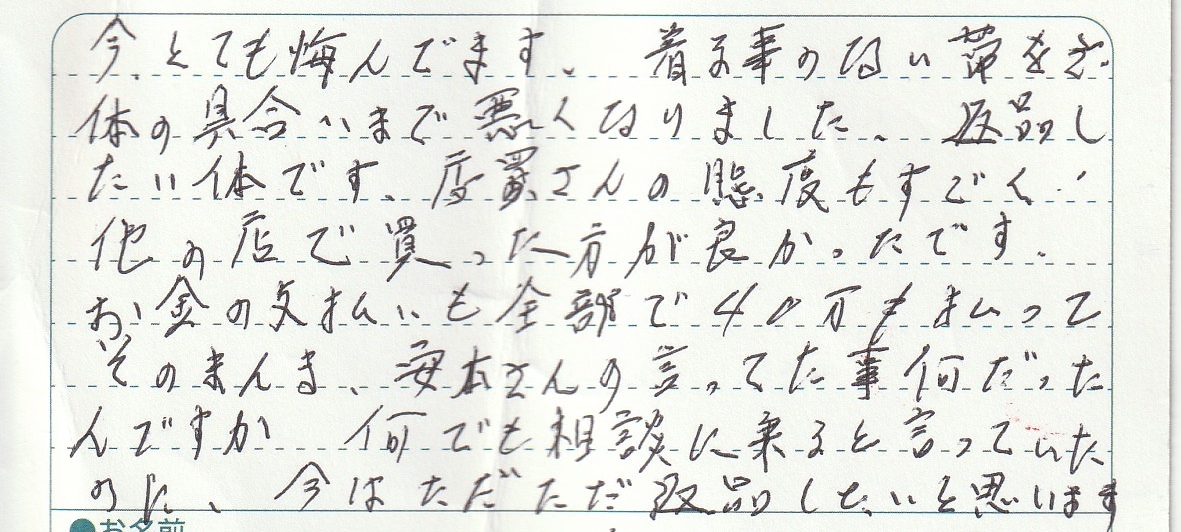 今、とても悔んでます、 着る事のない帯を
体の具合いまで悪くなりました、 返品し
たい体です、店員さんの態度もすごく
他の店で買った方が良かったです、
お金の支払いも全部で40万も払って
そのまんま、安本さんの言ってた事何だった
んですか 何でも相談に乗ると言っていた
のに、 今はただただ返品したいと思います
●お名前